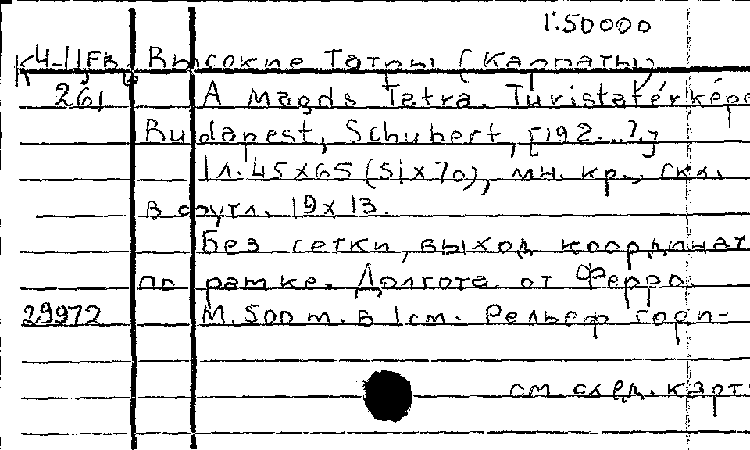 1:50000
К4-11Гв Высокие Татры (Карпаты)
261 A Magas Tatra. Turistatérképe
Budapest, Schubert, [192...?]
1 л. 45х65 (51х70), мн. кр., скл.
в футл. 19 х 13.
Без сетки, выход координат
по рамке. Долгота от Ферро.
29972 М. 500 м. в 1 см. Рельеф гори-
см. след. карт